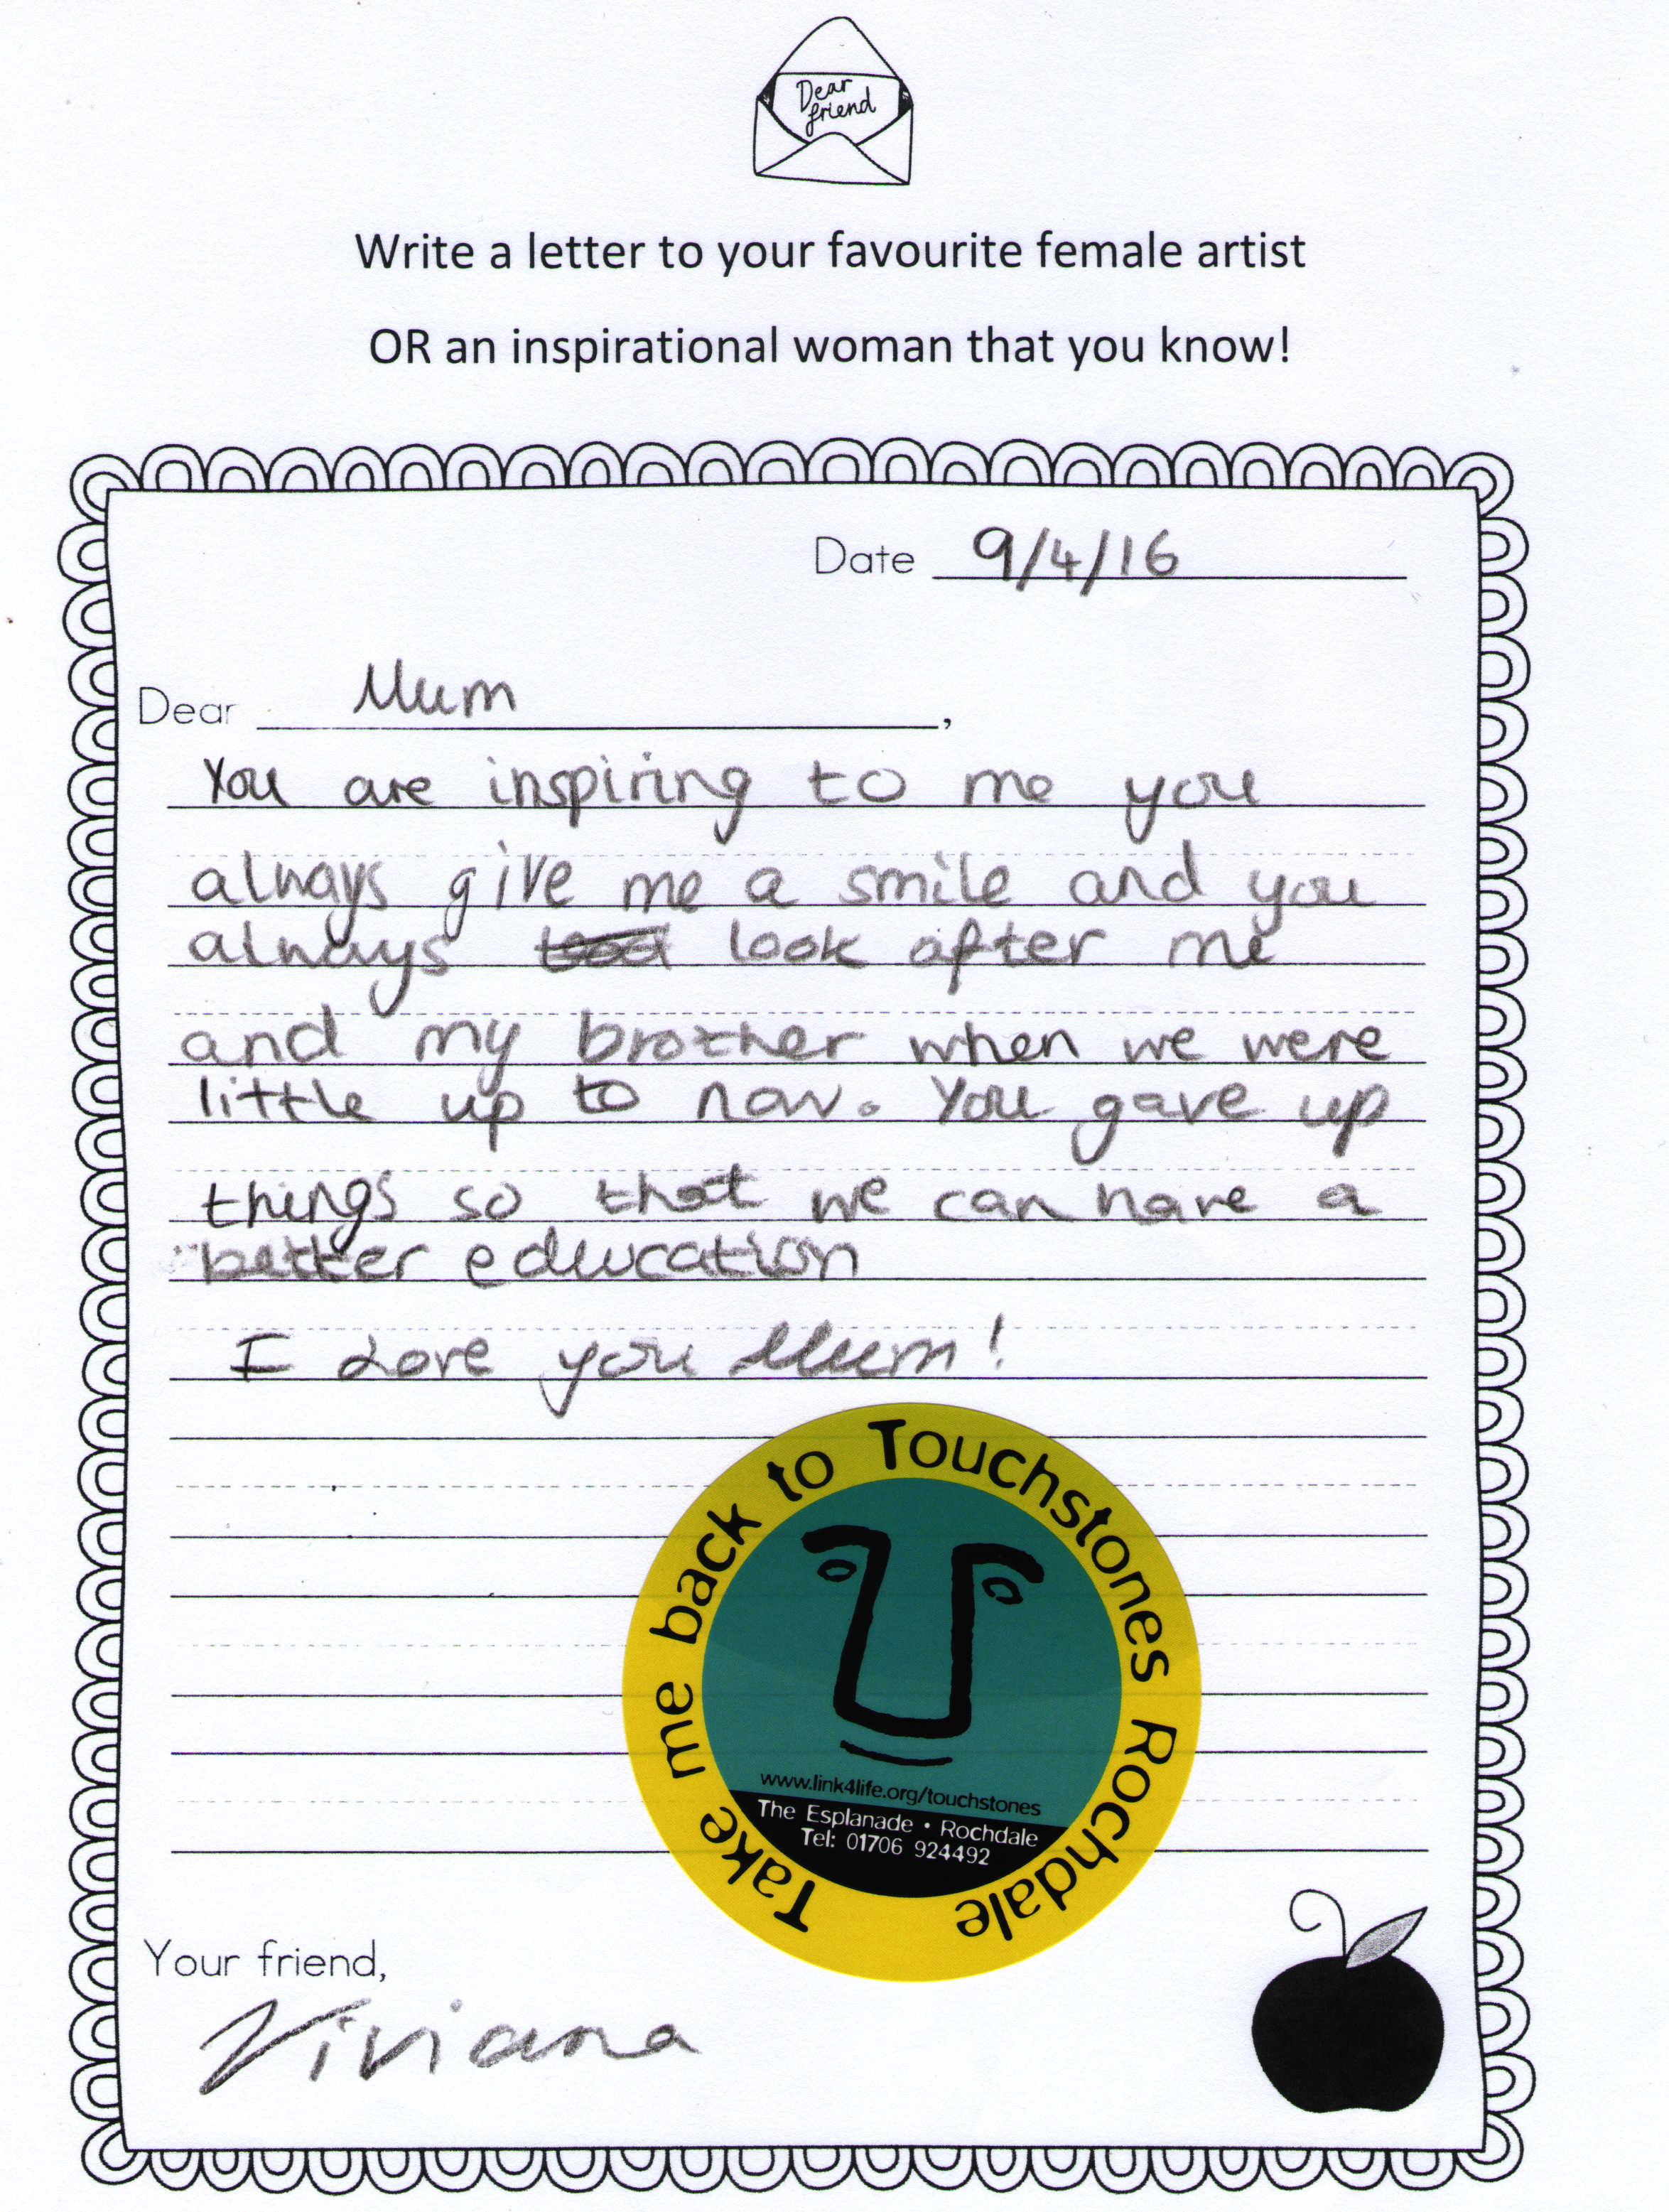 Dear
friend
Write a letter to your favourite female artist
OR an inspirational woman that you know!
Date 9/4/16
Dear Mum,
You are inspiring to me you
always give me a smile and you
always look after me
and my brother when we were
little up to now. You gave up
things so that we can have a
better education
I Love you Mum!
Take me back to Touchstones Rochdale
www.link4life.org/touchstones
The Esplanade • Rochdale
Tel: 01706 924492
Your friend,
Viviana